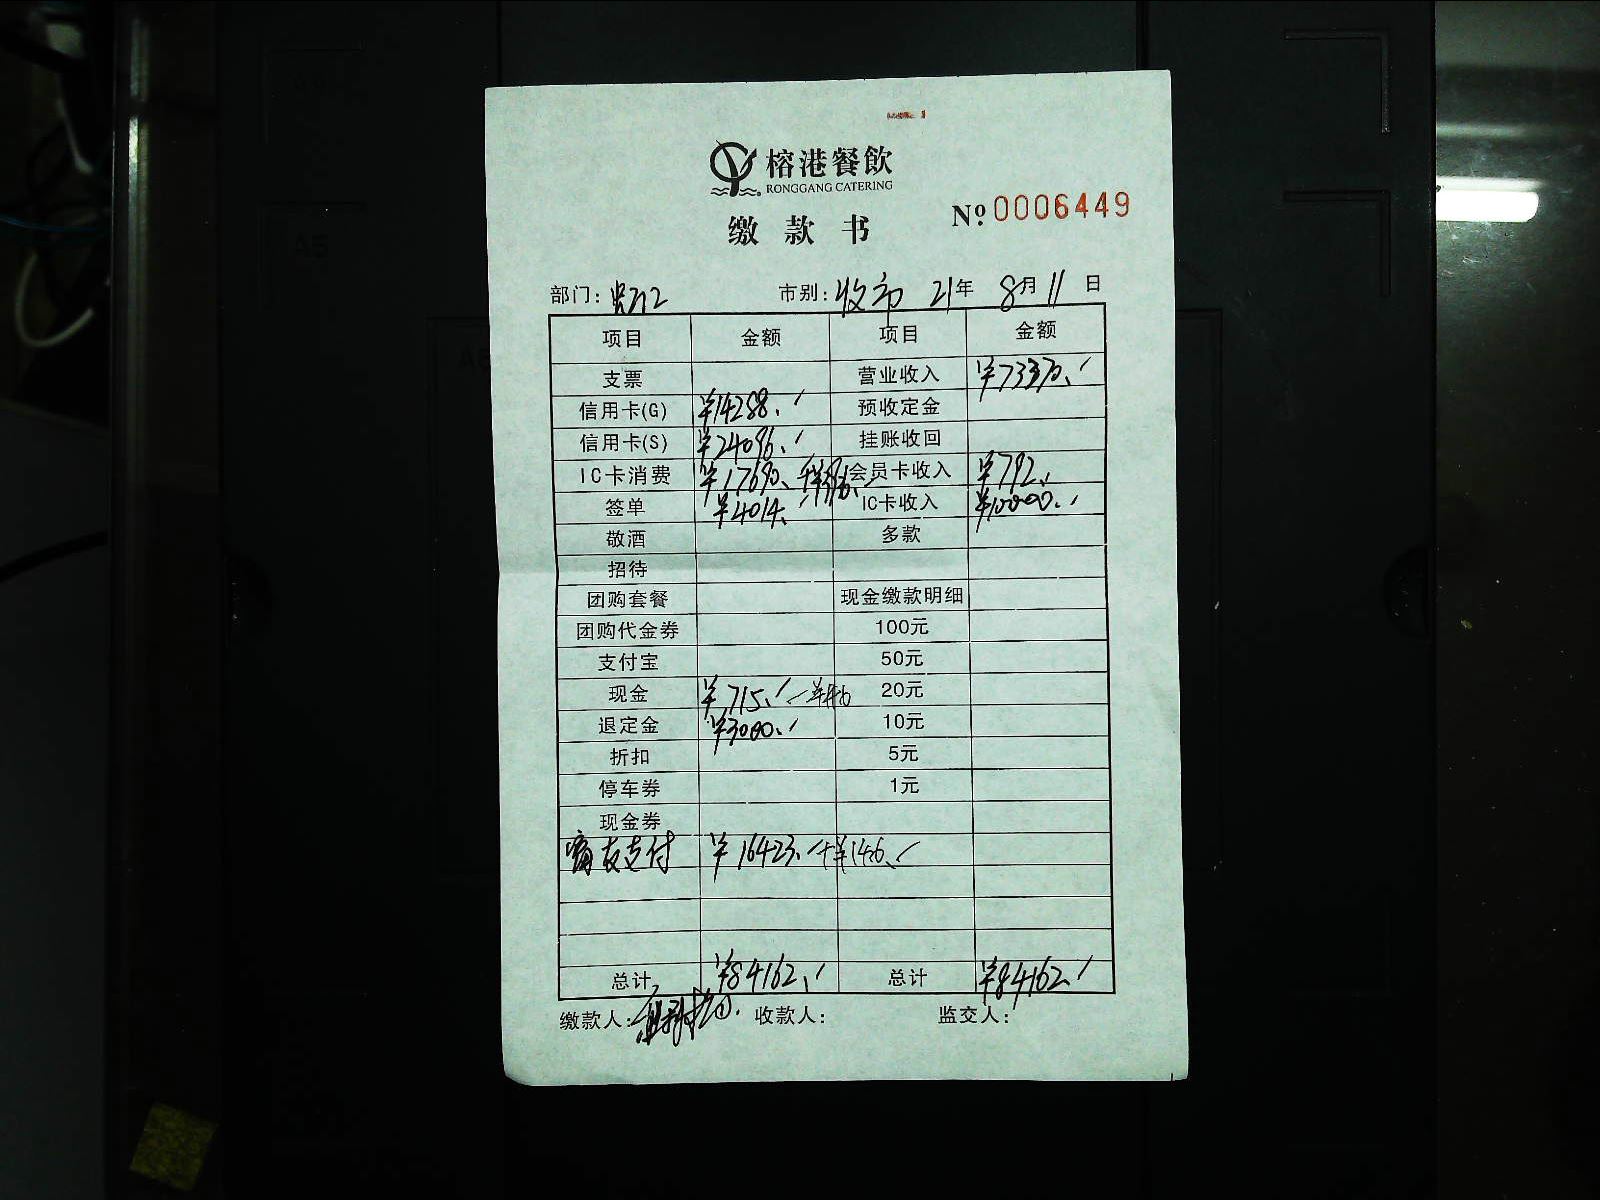 榕港餐飲
RONGGANG CATERING
缴款书
№ 0006449
部门: 市别: 收市 21年 8月 11日
项目 金额 项目 金额
支票 营业收入 ¥73370.
信用卡(G) ¥14288. 预收定金
信用卡(S) ¥24096. 挂账收回
IC卡消费 ¥17690. 会员卡收入 ¥792.
签单 ¥4014. IC卡收入 ¥10000.
敬酒 多款
招待
团购套餐 现金缴款明细
团购代金券 100元
支付宝 50元
现金 ¥715. 20元
退定金 ¥3000. 10元
折扣 5元
停车券 1元
现金券
支付 ¥16423. +¥146.
总计 ¥84162. 总计 ¥84162.
缴款人: 收款人: 监交人: